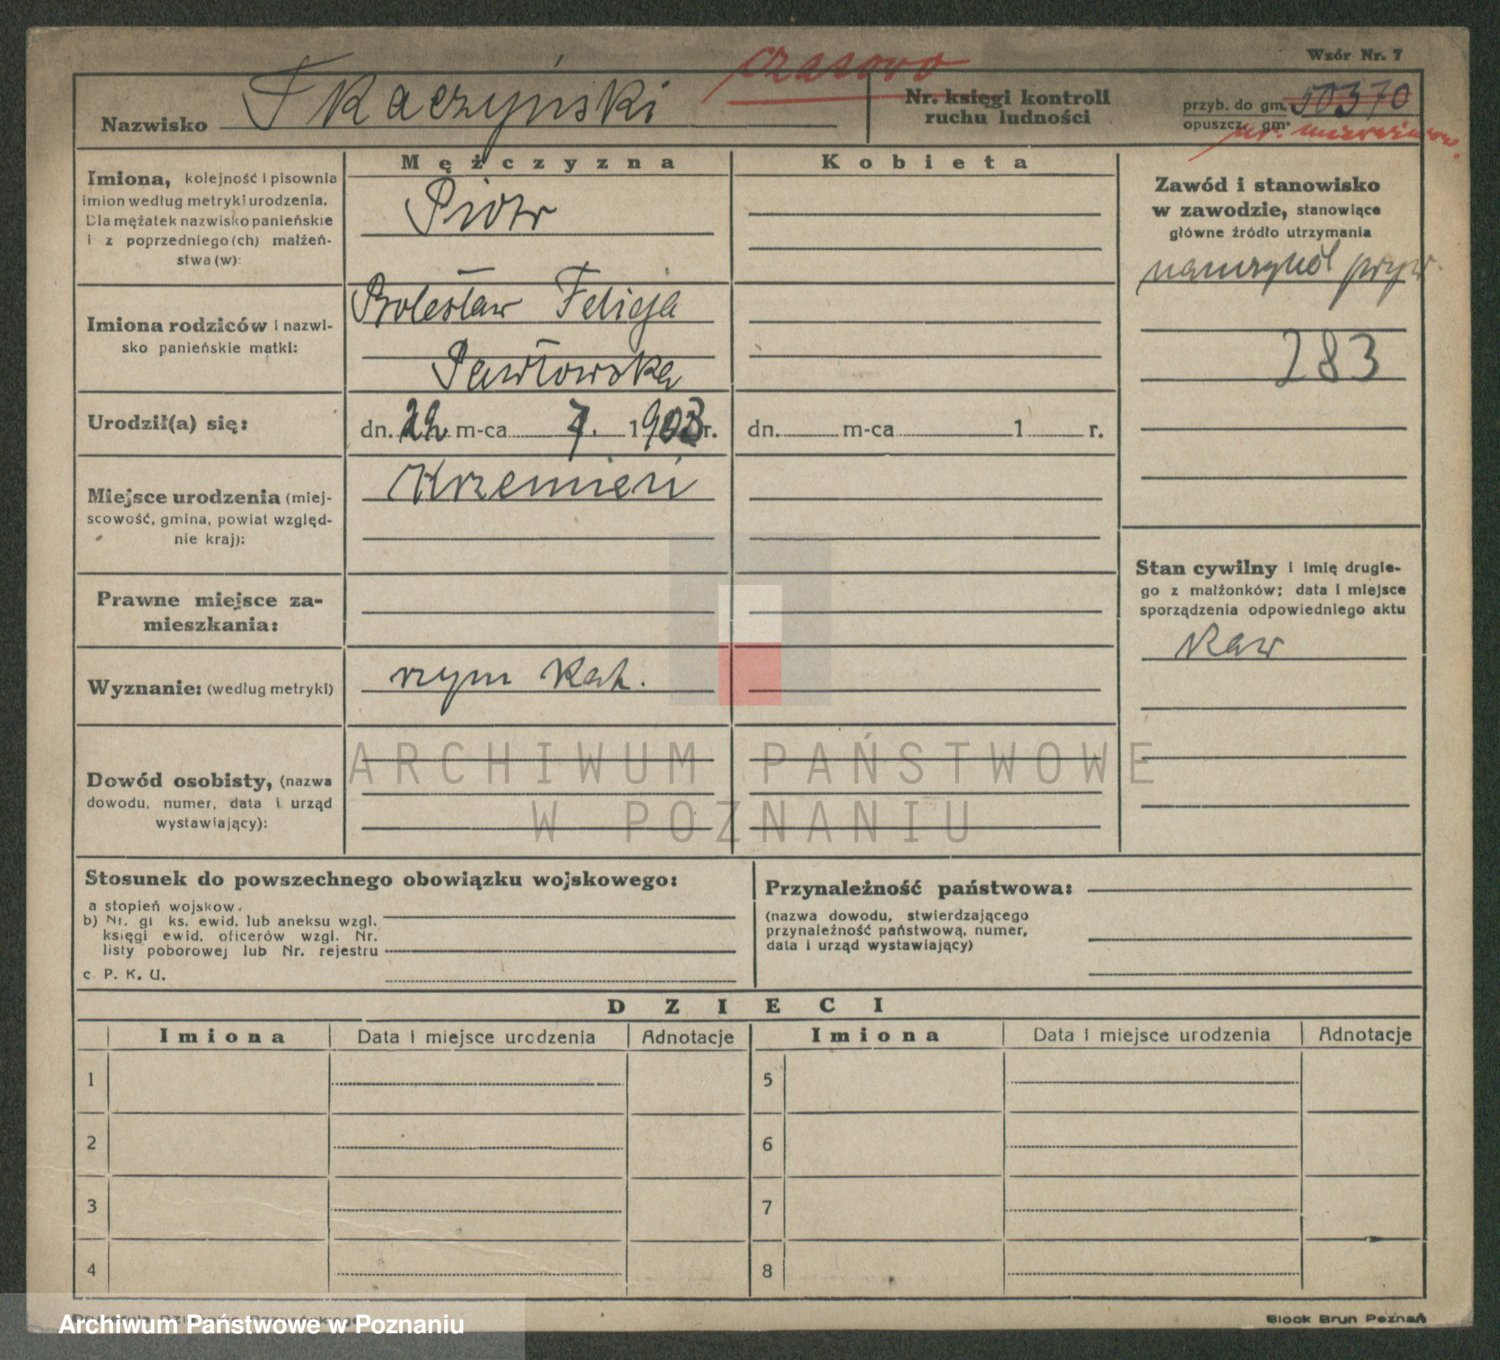 Wzór Nr. 7
czasowo
Nazwisko Tkaczyński
Nr. księgi kontroli
ruchu ludności
przyb. do gm. 50370
opuszcz. gm.
Mężczyzna
Kobieta
Imiona, kolejność i pisownia
imion według metryki urodzenia.
Dla mężatek nazwisko panieńskie
i z poprzedniego (ch) małżeń-
stwa (w):
Piotr
Imiona rodziców i nazwi-
sko panieńskie matki:
Bolesław Felicja
Pawłowska
Urodził(a) się:
dn. 22 m-ca 7. 1903 r.
dn. m-ca 1 r.
Miejsce urodzenia (miej-
scowość, gmina, powiat względ-
nie kraj):
Krzemień
Prawne miejsce za-
mieszkania:
Wyznanie: (według metryki)
rzym kat.
Dowód osobisty, (nazwa
dowodu, numer, data i urząd
wystawiający):
Zawód i stanowisko
w zawodzie, stanowiące
główne źródło utrzymania
pryw.
283
Stan cywilny i imię drugie-
go z małżonków; data i miejsce
sporządzenia odpowiedniego aktu
kaw
ARCHIWUM PAŃSTWOWE
W POZNANIU
Stosunek do powszechnego obowiązku wojskowego:
a stopień wojskow.
b) Nr. gł ks. ewid. lub aneksu wzgl.
księgi ewid. oficerów wzgl. Nr.
listy poborowej lub Nr. rejestru
c. P. K. U.
Przynależność państwowa:
(nazwa dowodu, stwierdzającego
przynależność państwową, numer,
data i urząd wystawiający)
DZIECI
Imiona Data i miejsce urodzenia Adnotacje Imiona Data i miejsce urodzenia Adnotacje
1 5
2 6
3 7
4 8
Archiwum Państwowe w Poznaniu
Block Brun Poznań